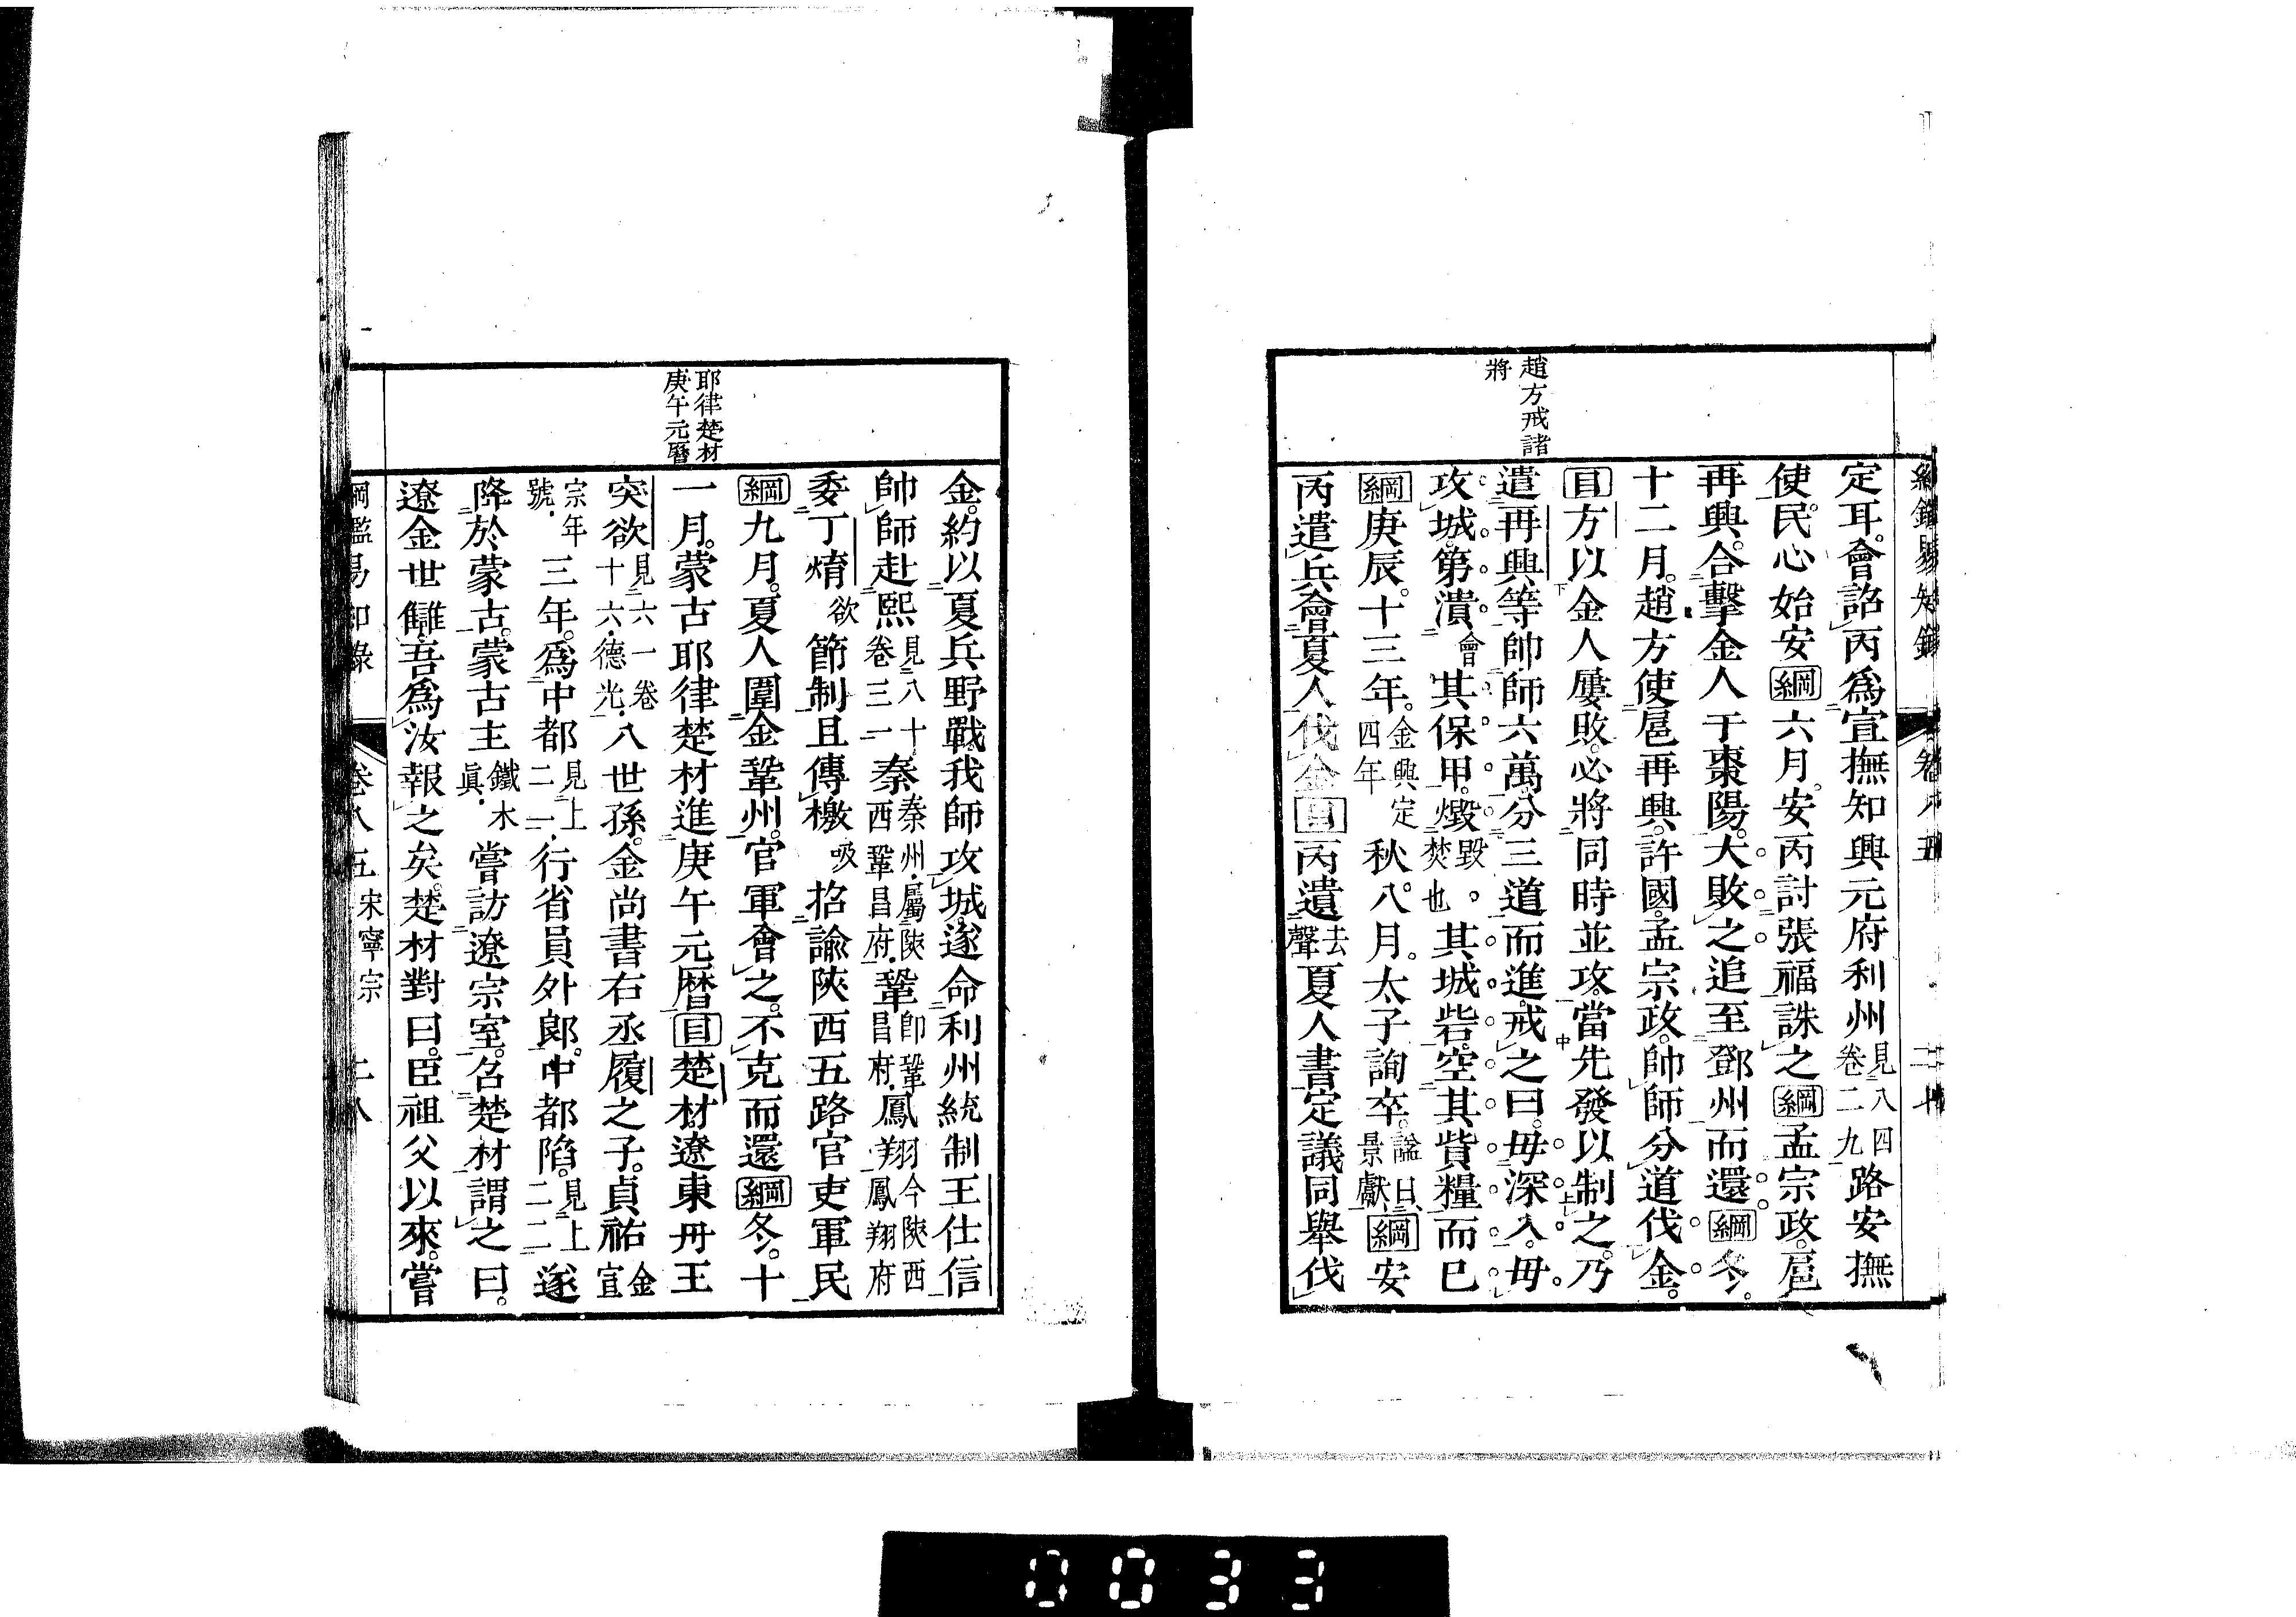 趙方戒諸
將
定耳。會詔丙爲宣撫知興元府利州見八四卷二九路安撫
使。民心始安綱六月。安丙討張福誅之綱孟宗政。扈
再興。合擊金人于棗陽。大敗之追至鄧州而還綱冬。
十二月。趙方使扈再興。許國。孟宗政。帥師分道伐金。
目方以金人屢敗。必將同時並攻。當先發以制之。乃
遣再興等帥師六萬。分三道而進。戒之曰。毋深入。毋
攻城。第潰會其保甲。燬毀。焚也其城砦。空其貲糧而已
綱庚辰。十三年。金興定四年秋。八月。太子詢卒。諡曰景獻綱安
丙遣兵會夏人伐金目丙遺去聲夏人書定議同舉伐
耶律楚材
庚午元曆
金。約以夏兵野戰。我師攻城。遂命利州統制王仕信
帥師赴熙見八十卷三一秦秦州。屬陝西鞏昌府。鞏卽鞏昌府。鳳翔今陝西鳳翔府
委丁焴欲節制且傳檄吸招諭陝西五路官吏軍民
綱九月。夏人圍金鞏州。官軍會之。不克而還綱冬。十
一月。蒙古耶律楚材進庚午元曆目楚材。遼東丹王
突欲見六一卷十六。德光。八世孫。金尚書右丞履之子。貞祐金宣
宗年號。三年。爲中都見上二一。行省員外郞。中都陷。見上二二遂
降於蒙古。蒙古主鐵木眞。嘗訪遼宗室。召楚材謂之曰。
遼金世讎。吾爲汝報之矣。楚材對曰。臣祖父以來。嘗
綱鑑易知錄 卷八五 宋寧宗 二八
0033